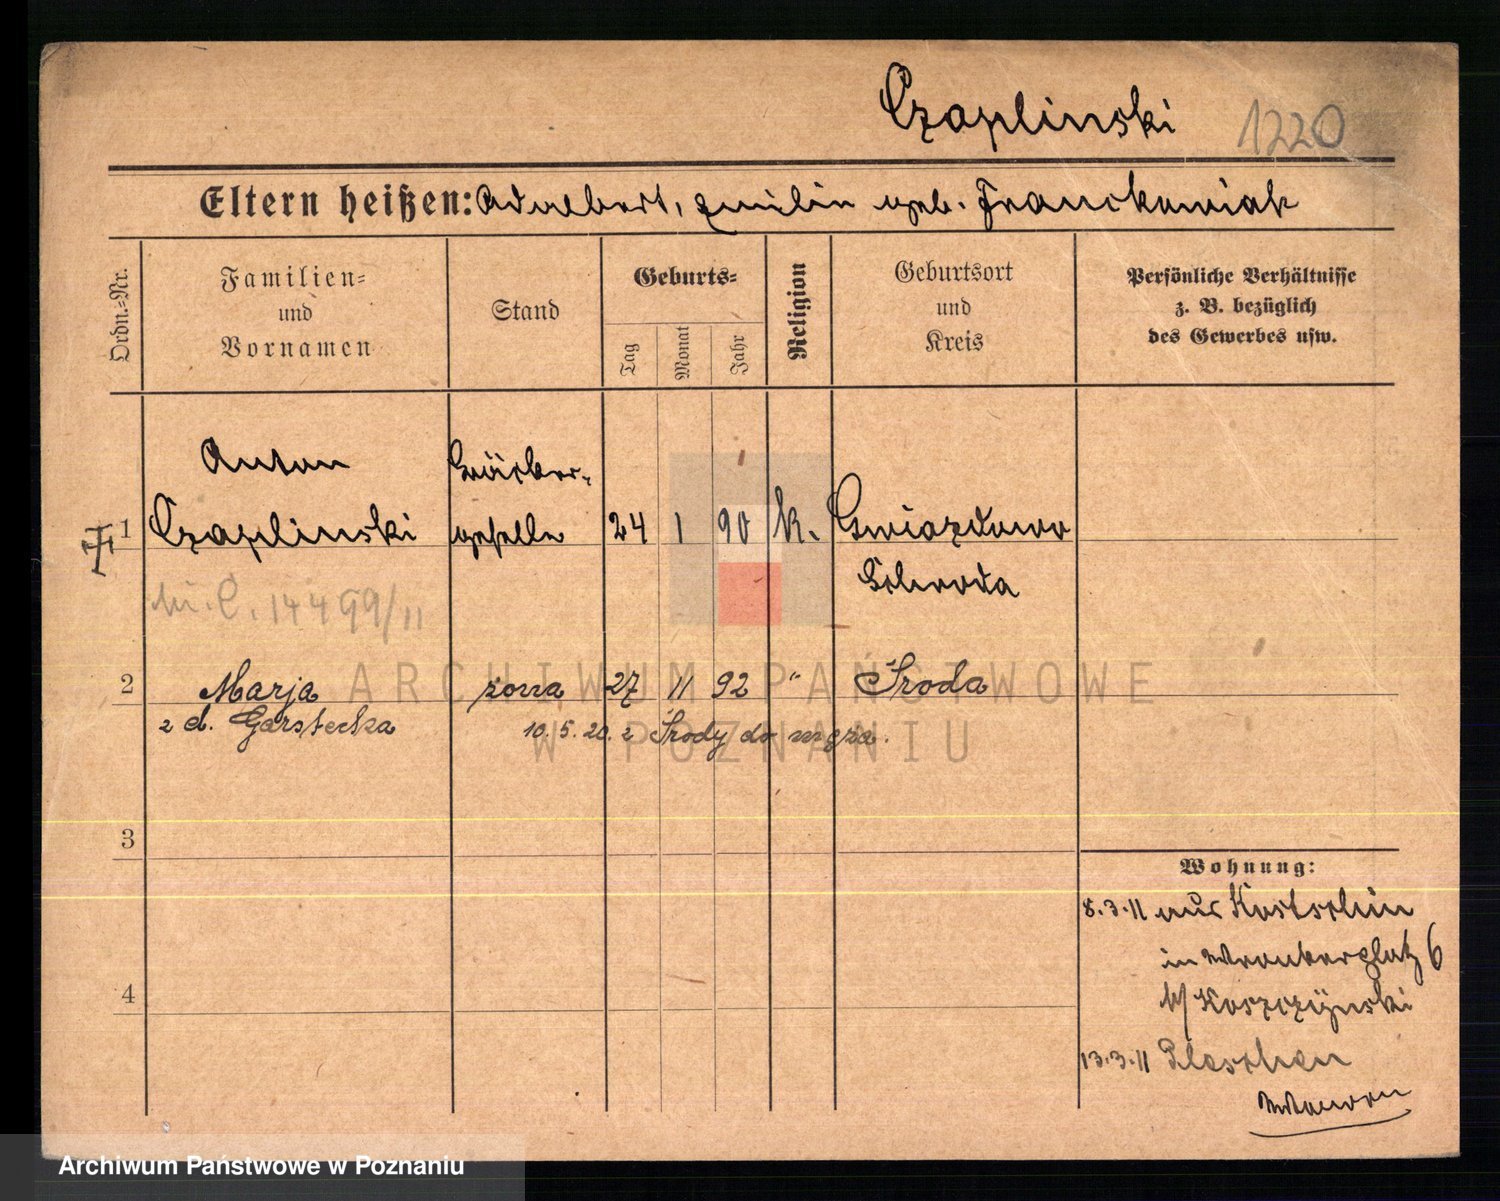 Czaplinski 1220
Eltern heißen: Adalbert, Emilie geb. Franckowiak
Ordn.-Nr.
Familien- und Vornamen
Stand
Geburts-
Tag
Monat
Jahr
Religion
Geburtsort und Kreis
Persönliche Verhältnisse
z. B. bezüglich
des Gewerbes usw.
Anton
1 Czaplinski geselle 24 1 90 k. Gwiazdowo
Schroda
C. 14499/11
2 Marja żona 27 11 92 " Środa
z d. Garstecka 10.5.20. z Środy do męża.
3
Wohnung:
8.3.11 aus Kostschin
in Wronkerplatz 6
b/ Koszczynski
4
13.3.11 Pleschen
ARCHIWUM PAŃSTWOWE
W POZNANIU
Archiwum Państwowe w Poznaniu